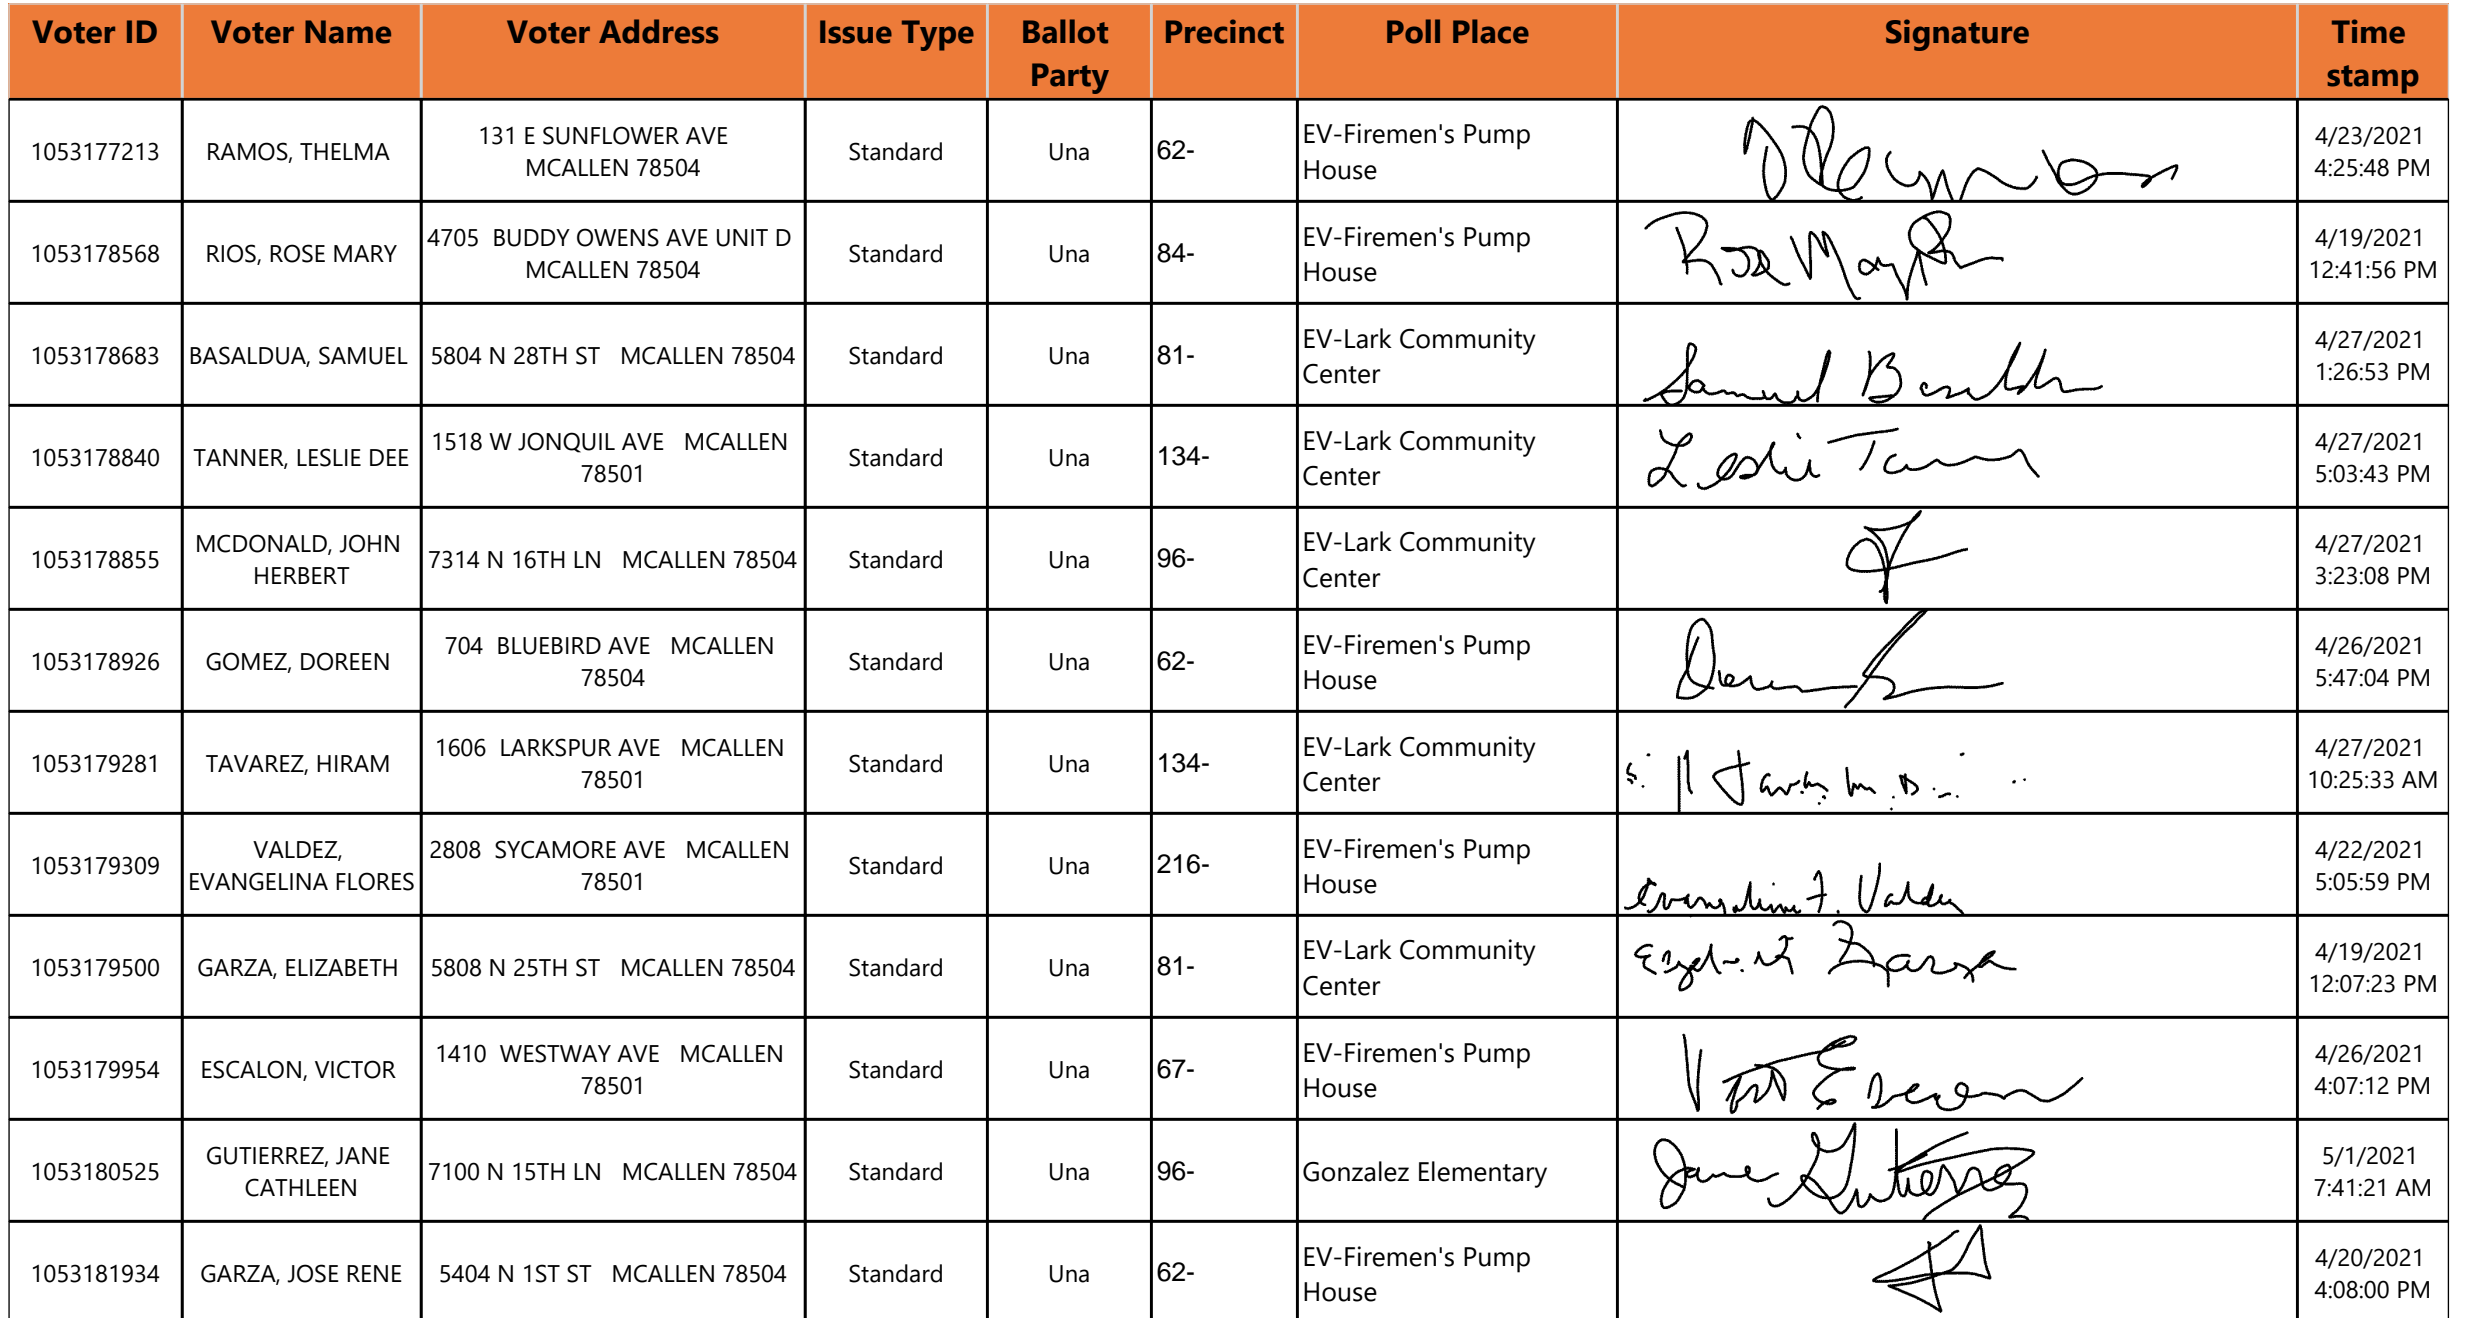 Voter ID Voter Name Voter Address Issue Type Ballot Party Precinct Poll Place Signature Time stamp
1053177213 RAMOS, THELMA 131 E SUNFLOWER AVE MCALLEN 78504 Standard Una 62- EV-Firemen's Pump House 4/23/2021 4:25:48 PM
1053178568 RIOS, ROSE MARY 4705 BUDDY OWENS AVE UNIT D MCALLEN 78504 Standard Una 84- EV-Firemen's Pump House Rose Mary 4/19/2021 12:41:56 PM
1053178683 BASALDUA, SAMUEL 5804 N 28TH ST MCALLEN 78504 Standard Una 81- EV-Lark Community Center Samuel 4/27/2021 1:26:53 PM
1053178840 TANNER, LESLIE DEE 1518 W JONQUIL AVE MCALLEN 78501 Standard Una 134- EV-Lark Community Center Leslie Tanner 4/27/2021 5:03:43 PM
1053178855 MCDONALD, JOHN HERBERT 7314 N 16TH LN MCALLEN 78504 Standard Una 96- EV-Lark Community Center 4/27/2021 3:23:08 PM
1053178926 GOMEZ, DOREEN 704 BLUEBIRD AVE MCALLEN 78504 Standard Una 62- EV-Firemen's Pump House 4/26/2021 5:47:04 PM
1053179281 TAVAREZ, HIRAM 1606 LARKSPUR AVE MCALLEN 78501 Standard Una 134- EV-Lark Community Center 4/27/2021 10:25:33 AM
1053179309 VALDEZ, EVANGELINA FLORES 2808 SYCAMORE AVE MCALLEN 78501 Standard Una 216- EV-Firemen's Pump House Evangelina F. Valdez 4/22/2021 5:05:59 PM
1053179500 GARZA, ELIZABETH 5808 N 25TH ST MCALLEN 78504 Standard Una 81- EV-Lark Community Center Elizabeth Garza 4/19/2021 12:07:23 PM
1053179954 ESCALON, VICTOR 1410 WESTWAY AVE MCALLEN 78501 Standard Una 67- EV-Firemen's Pump House 4/26/2021 4:07:12 PM
1053180525 GUTIERREZ, JANE CATHLEEN 7100 N 15TH LN MCALLEN 78504 Standard Una 96- Gonzalez Elementary Jane Gutierrez 5/1/2021 7:41:21 AM
1053181934 GARZA, JOSE RENE 5404 N 1ST ST MCALLEN 78504 Standard Una 62- EV-Firemen's Pump House 4/20/2021 4:08:00 PM